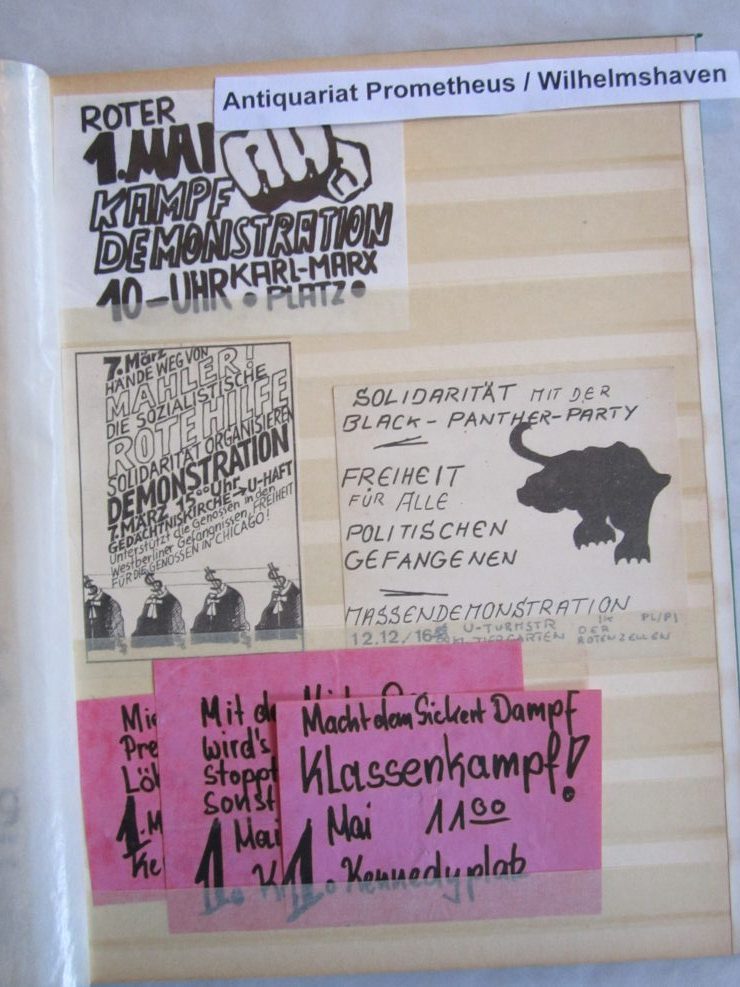 Antiquariat Prometheus / Wilhelmshaven
ROTER
1. MAI
KAMPF
DEMONSTRATION
10-UHR KARL-MARX
• PLATZ •
7. März
HÄNDE WEG VON
MAHLER!
DIE SOZIALISTISCHE
ROTE HILFE
SOLIDARITÄT ORGANISIEREN
DEMONSTRATION
7. MÄRZ 15.00 Uhr
GEDÄCHTNISKIRCHE → U-HAFT
Unterstützt die Genossen in den
Westberliner Gefängnissen, FREIHEIT
FÜR DIE GENOSSEN IN CHICAGO!
SOLIDARITÄT MIT DER
BLACK-PANTHER-PARTY
FREIHEIT
FÜR ALLE
POLITISCHEN
GEFANGENEN
MASSENDEMONSTRATION
12.12./16 U-TURMSTR
TIERGARTEN
PL/PI
DER
ROTENZELLEN
Mit
wird's
stoppt
sonst
1. Mai
Macht dem Sickert Dampf
Klassenkampf!
1. Mai 11 00
Kennedyplatz